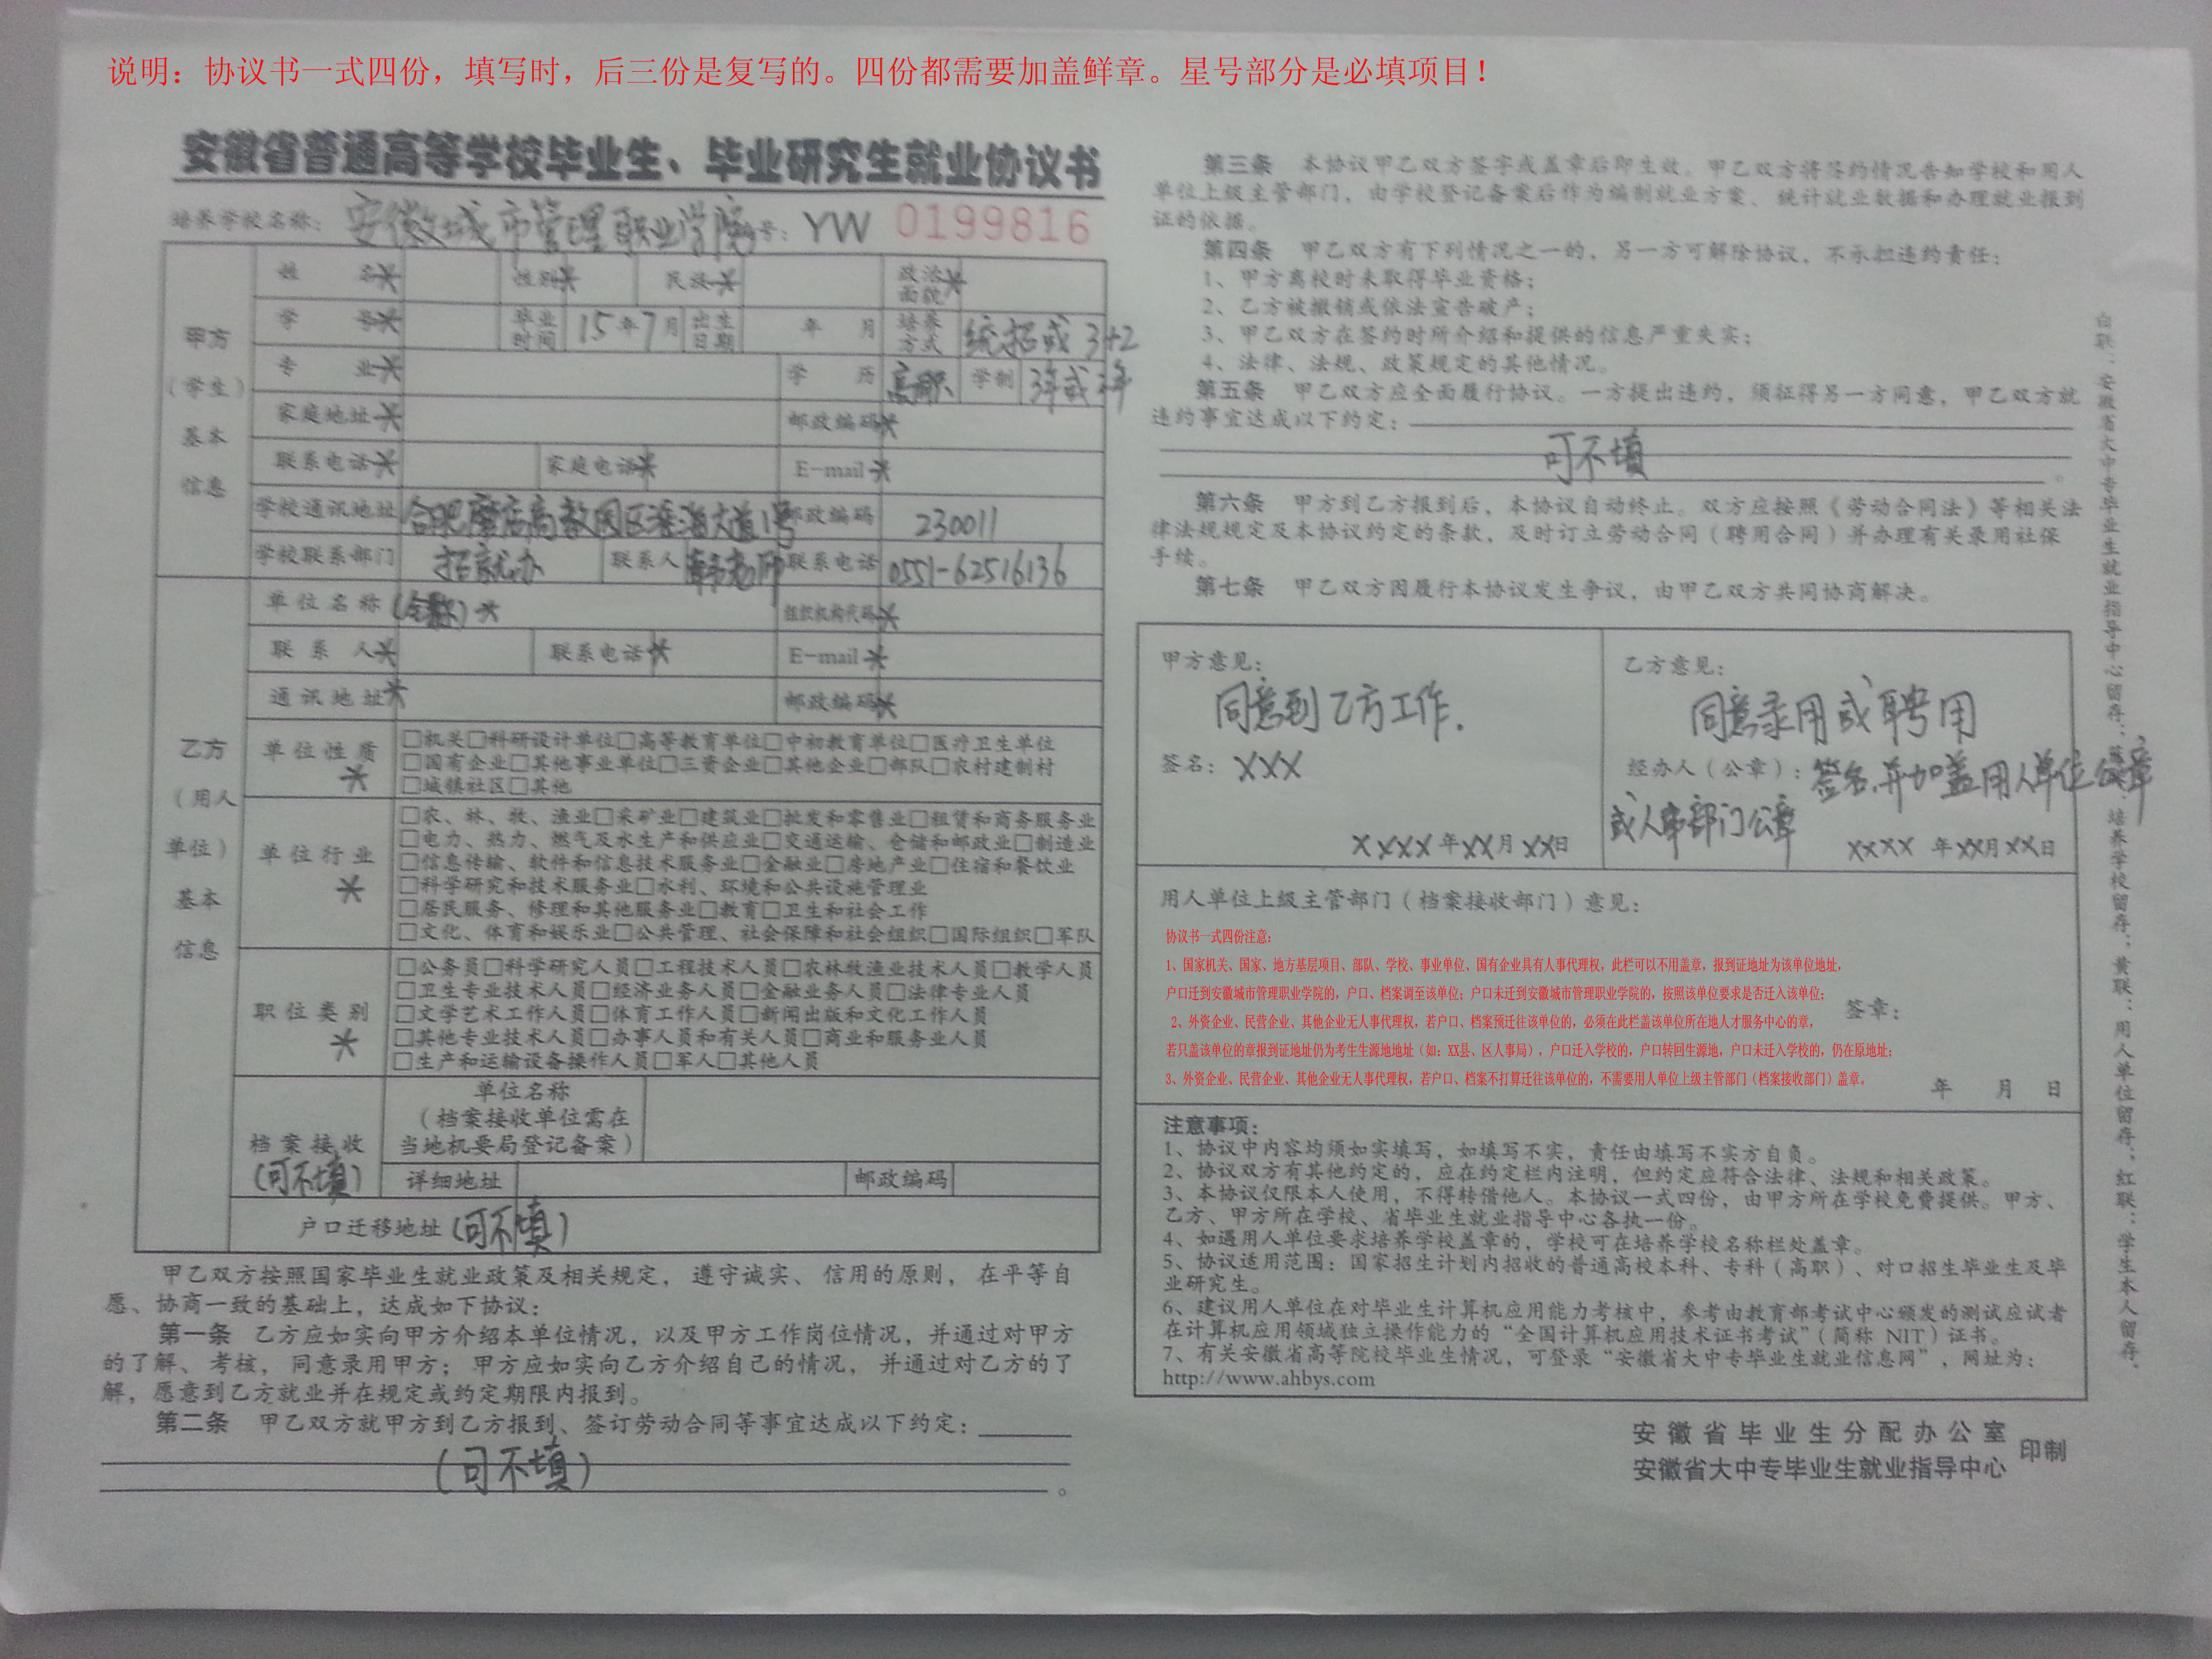 说明：协议书一式四份，填写时，后三份是复写的。四份都需要加盖鲜章。星号部分是必填项目！
安徽省普通高等学校毕业生、毕业研究生就业协议书
培养学校名称：安徽城市管理职业学院 号：YW 0199816
甲方（学生）基本信息
姓 名* 性别* 民族* 政治面貌*
学 号* 毕业时间 15年7月 出生日期 年 月 培养方式 统招或3+2
专 业* 学 历 高职 学制 3年或2年
家庭地址* 邮政编码*
联系电话* 家庭电话* E-mail*
学校通讯地址 合肥磨店高教园区 大道1号 邮政编码 230011
学校联系部门 招就办 联系人 老师 联系电话 0551-62516136
乙方（用人单位）基本信息
单位名称（全称）* 组织机构代码*
联 系 人* 联系电话* E-mail*
通讯地址* 邮政编码*
单位性质*
□机关□科研设计单位□高等教育单位□中初教育单位□医疗卫生单位
□国有企业□其他事业单位□三资企业□其他企业□部队□农村建制村
□城镇社区□其他
单位行业*
□农、林、牧、渔业□采矿业□建筑业□批发和零售业□租赁和商务服务业
□电力、热力、燃气及水生产和供应业□交通运输、仓储和邮政业□制造业
□信息传输、软件和信息技术服务业□金融业□房地产业□住宿和餐饮业
□科学研究和技术服务业□水利、环境和公共设施管理业
□居民服务、修理和其他服务业□教育□卫生和社会工作
□文化、体育和娱乐业□公共管理、社会保障和社会组织□国际组织□军队
职位类别*
□公务员□科学研究人员□工程技术人员□农林牧渔业技术人员□教学人员
□卫生专业技术人员□经济业务人员□金融业务人员□法律专业人员
□文学艺术工作人员□体育工作人员□新闻出版和文化工作人员
□其他专业技术人员□办事人员和有关人员□商业和服务业人员
□生产和运输设备操作人员□军人□其他人员
档案接收（可不填）
单位名称
（档案接收单位需在
当地机要局登记备案）
详细地址 邮政编码
户口迁移地址（可不填）
甲乙双方按照国家毕业生就业政策及相关规定，遵守诚实、信用的原则，在平等自
愿、协商一致的基础上，达成如下协议：
第一条 乙方应如实向甲方介绍本单位情况，以及甲方工作岗位情况，并通过对甲方
的了解、考核，同意录用甲方；甲方应如实向乙方介绍自己的情况，并通过对乙方的了
解，愿意到乙方就业并在规定或约定期限内报到。
第二条 甲乙双方就甲方到乙方报到、签订劳动合同等事宜达成以下约定：
（可不填）。
第三条 本协议甲乙双方签字或盖章后即生效。甲乙双方将签约情况告知学校和用人
单位上级主管部门，由学校登记备案后作为编制就业方案、统计就业数据和办理就业报到
证的依据。
第四条 甲乙双方有下列情况之一的，另一方可解除协议，不承担违约责任：
1、甲方离校时未取得毕业资格；
2、乙方被撤销或依法宣告破产；
3、甲乙双方在签约时所介绍和提供的信息严重失实；
4、法律、法规、政策规定的其他情况。
第五条 甲乙双方应全面履行协议。一方提出违约，须征得另一方同意，甲乙双方就
违约事宜达成以下约定：
可不填。
第六条 甲方到乙方报到后，本协议自动终止。双方应按照《劳动合同法》等相关法
律法规规定及本协议约定的条款，及时订立劳动合同（聘用合同）并办理有关录用社保
手续。
第七条 甲乙双方因履行本协议发生争议，由甲乙双方共同协商解决。
甲方意见：
同意到乙方工作.
签名：XXX
XXXX年XX月XX日
乙方意见：
同意录用或聘用
经办人（公章）：签名,并加盖用人单位公章
或人事部门公章
XXXX 年XX月XX日
用人单位上级主管部门（档案接收部门）意见：
协议书一式四份注意：
1、国家机关、国家、地方基层项目、部队、学校、事业单位、国有企业具有人事代理权，此栏可以不用盖章，报到证地址为该单位地址，
户口迁到安徽城市管理职业学院的，户口、档案调至该单位；户口未迁到安徽城市管理职业学院的，按照该单位要求是否迁入该单位；
2、外资企业、民营企业、其他企业无人事代理权，若户口、档案预迁往该单位的，必须在此栏盖该单位所在地人才服务中心的章，
签章：
若只盖该单位的章报到证地址仍为考生生源地地址（如：XX县、区人事局），户口迁入学校的，户口转回生源地，户口未迁入学校的，仍在原地址；
3、外资企业、民营企业、其他企业无人事代理权，若户口、档案不打算迁往该单位的，不需要用人单位上级主管部门（档案接收部门）盖章。
年 月 日
注意事项：
1、协议中内容均须如实填写，如填写不实，责任由填写不实方自负。
2、协议双方有其他约定的，应在约定栏内注明，但约定应符合法律、法规和相关政策。
3、本协议仅限本人使用，不得转借他人。本协议一式四份，由甲方所在学校免费提供。甲方、
乙方、甲方所在学校、省毕业生就业指导中心各执一份。
4、如遇用人单位要求培养学校盖章的，学校可在培养学校名称栏处盖章。
5、协议适用范围：国家招生计划内招收的普通高校本科、专科（高职）、对口招生毕业生及毕
业研究生。
6、建议用人单位在对毕业生计算机应用能力考核中，参考由教育部考试中心颁发的测试应试者
在计算机应用领域独立操作能力的“全国计算机应用技术证书考试”（简称 NIT）证书。
7、有关安徽省高等院校毕业生情况，可登录“安徽省大中专毕业生就业信息网”，网址为：
http://www.ahbys.com
安徽省毕业生分配办公室
安徽省大中专毕业生就业指导中心 印制
白联：安徽省大中专毕业生就业指导中心留存；培养学校留存；黄联：用人单位留存；红联：学生本人留存。